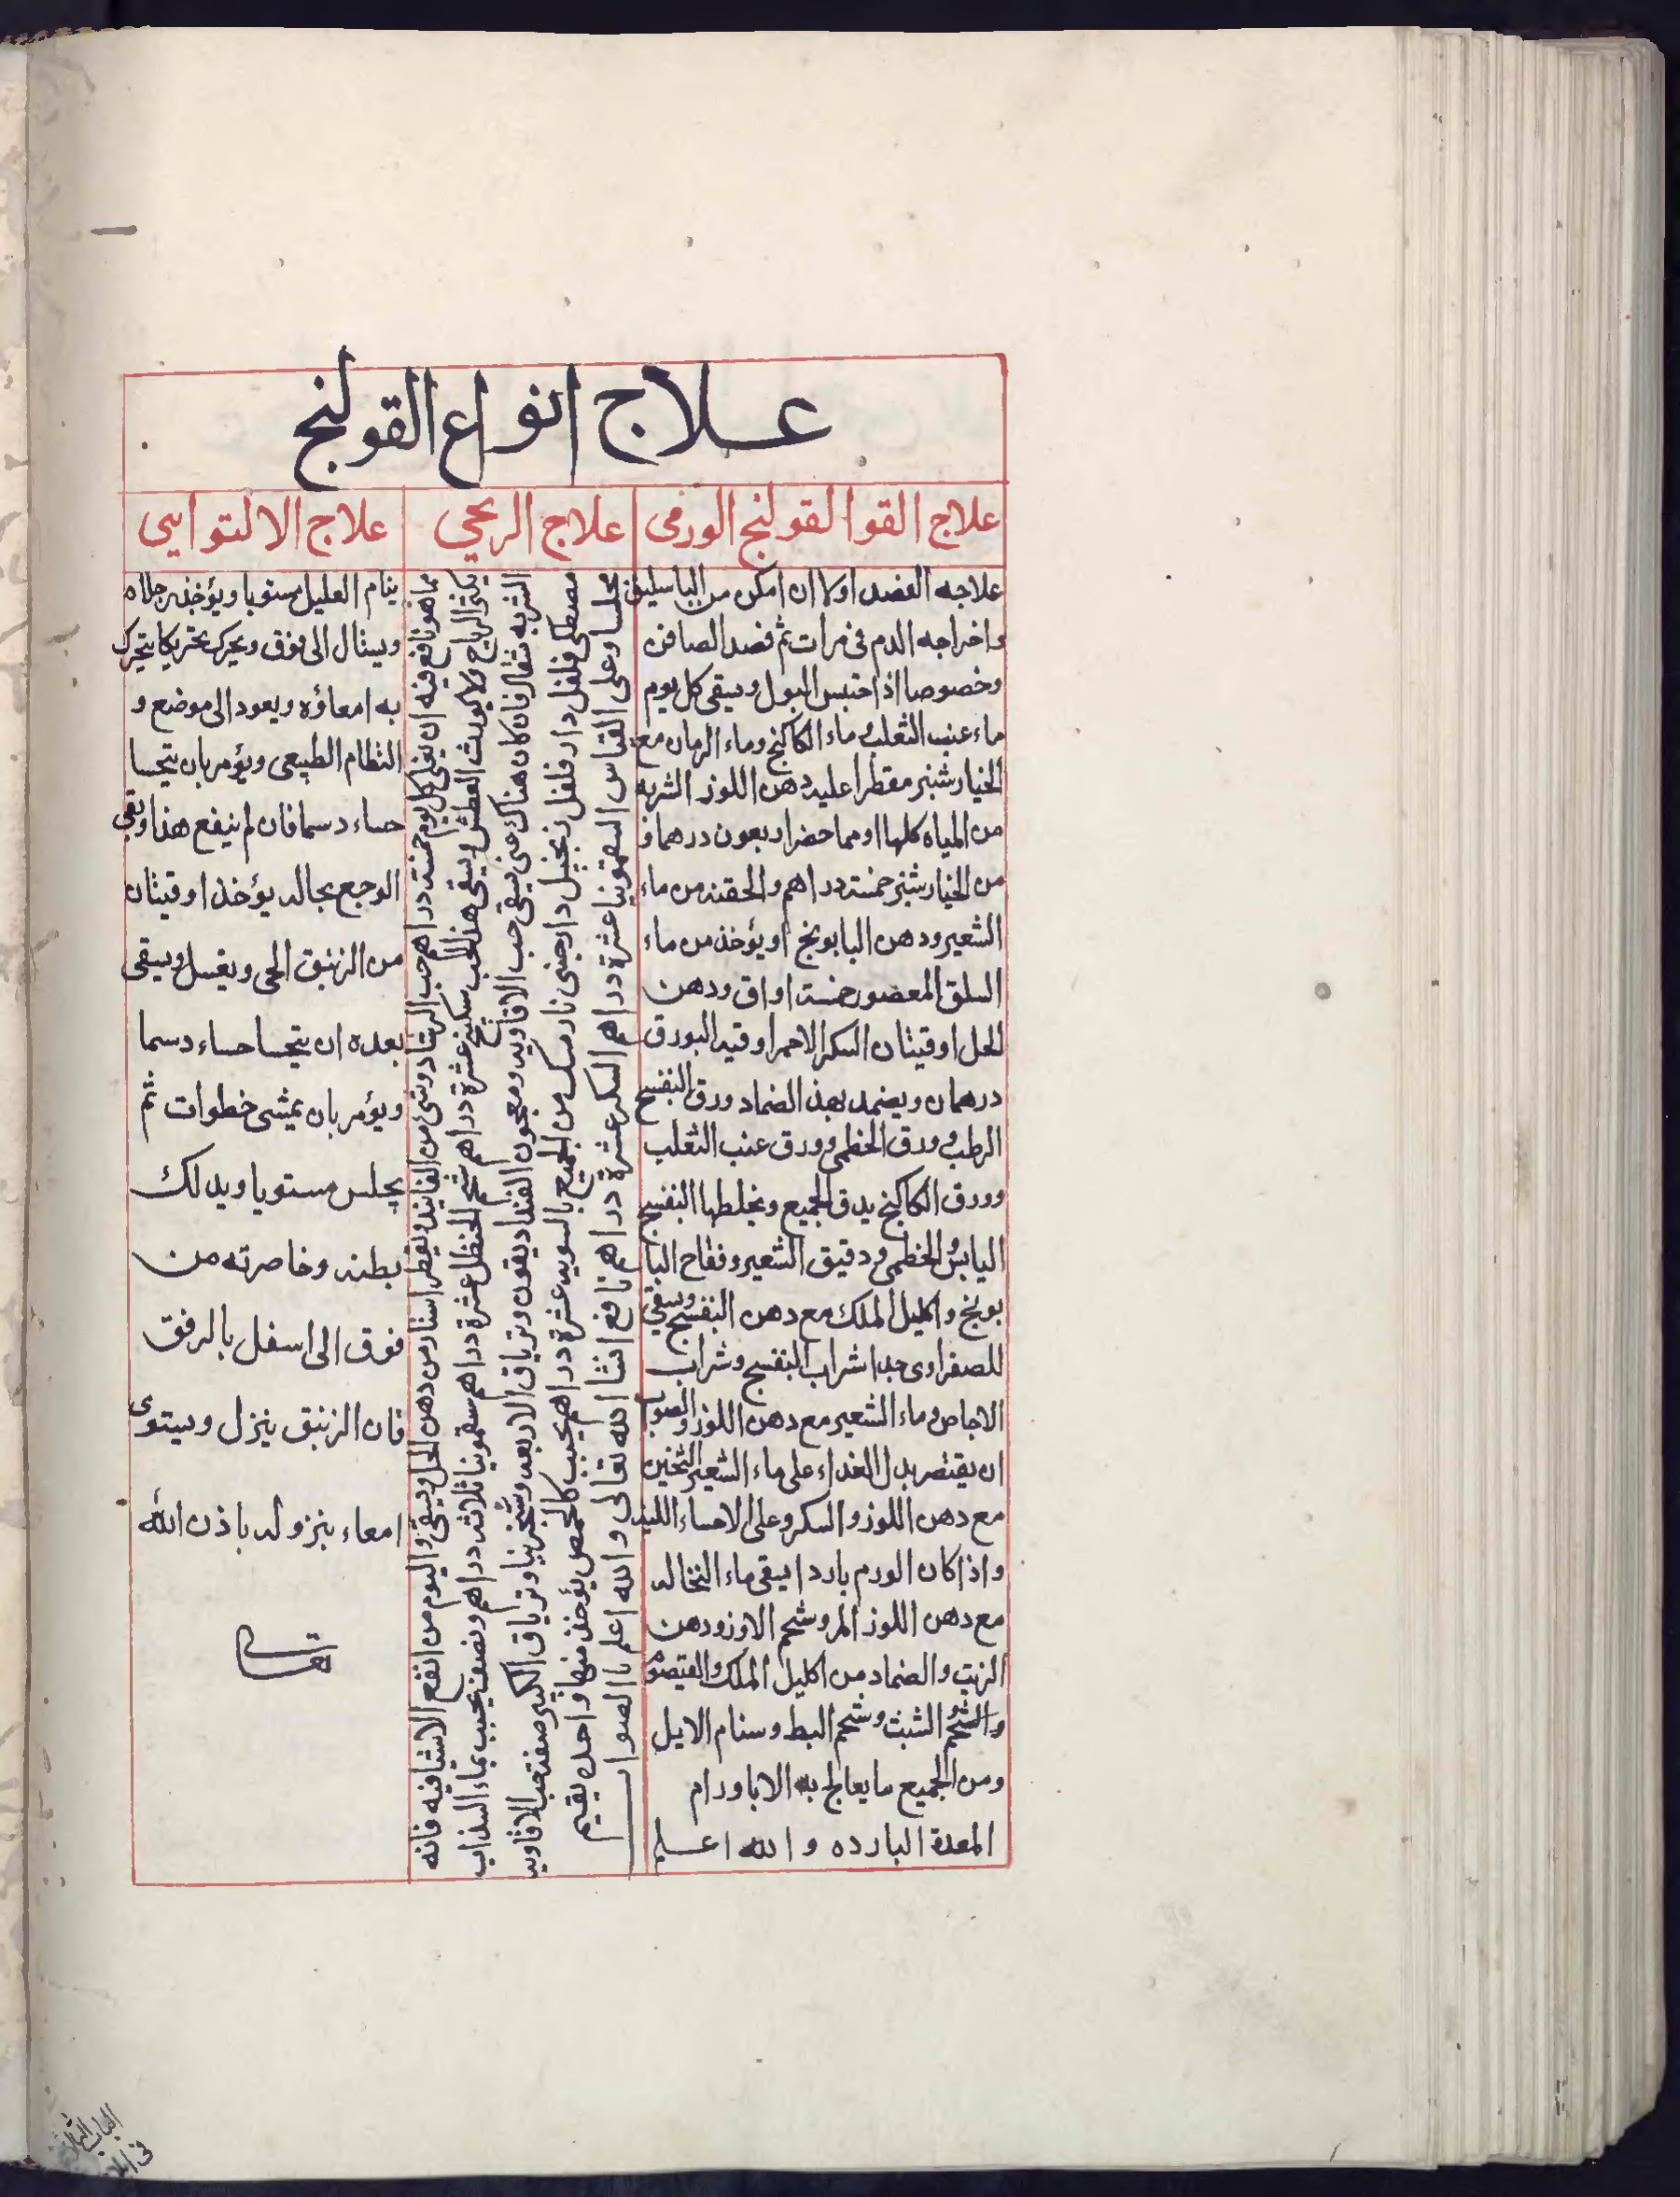 علاج انواع القولنج
علاج القوا لقولنج الورمى
علاجه الفصد اولا ان امكن من الباسليق
واخراجه الدم فى مرات ثم فصد الصافن
وخصوصا اذا احتبس البول ويسقى كل يوم
ماء عنب الثعلب وماء الكاكنج وماء الرمان مع
الخيارشنبر مقطرا عليه دهن اللوز الشربه
من المياه كلها او مما حضر اربعون درهما و
من الخيارشنبر خمسة دراهم والحقنه من ماء
الشعير ودهن البابونج او يؤخذ من ماء
السلق المعصور خمسة اواق ودهن
الحل اوقيتان السكر الاحمر اوقيه البورق
درهمان ويضمد بهذ الضماد ورق البنفسج
الرطب وورق الخطمى وورق عنب الثعلب
وورق الكاكنج يدق الجميع ويخلطها البنفسج
اليابس والخطمى ودقيق الشعير وفقاح البا
بونج واكليل الملك مع دهن البنفسج ويسقى
للصفراوى جدا شراب البنفسج وشراب
الاجاص وماء الشعير مع دهن اللوز والصواب
ان يقتصر بدل الغداء على ماء الشعير الثخين
مع دهن اللوز والسكر وعلى الاحساء اللينه
واذا كان الورم باردا يسقى ماء النخاله
مع دهن اللوز المر وشحم الاوز ودهن
الزيت والضماد من اكليل الملك والقيصوم
والشحم الشبث وشحم البط وسنام الايل
ومن الجميع ما يعالج به الا باورام
المعدة البارده والله اعلم
علاج الريحي
مما هو نافع فيه ان يغلى كل يوم خمسة دراهم حب الرشاد وشئ من الفانيد ويقطر استار من دهن الحل ويسقى واليوم من انفع الاشيا فيه فانه
يكثر الرياح ولا يورث العطش ويسقى هذا الحب سكبينج عشرة دراهم شحم الحنظل عشرة دراهم سقمونيا ثلاثه دراهم ونصف يحبب بماء السذاب
الشربه مثقال فان كان هناك غنى يسقى حب الافاويه ومعجون الفنداديقون وترياق الاربعه وشجرنيا وترياق الكبير صفة حب الافاويه
مصطكى فلفل دار فلفل زنجبيل دارجينى نارمسك من الجميع بالسويه عشرة دراهم يحبب كالحمص يؤخذ منها واحده يقيم
مجلسا وعلى القياس السقمونيا عشرة دراهم السكر عشرة دراهم نافع انشا الله تعالى والله اعلم بالصواب
علاج الالتوايى
ينام العليل مستويا ويؤخذ برجلاه
ويشال الى فوق ويحرك تحريكا يتحرك
به امعاؤه ويعود الى موضع و
النظام الطبيعى ويؤمر بان يتحسا
حساء دسما فان لم ينفع هذا وبقى
الوجع بحاله يؤخذ اوقيتان
من الزيبق الحى ويغسل ويسقى
بعده ان يتحسا حساء دسما
ويؤمر بان يمشى خطوات ثم
يجلس مستويا ويدلك
بطنه وخاصرته من
فوق الى اسفل بالرفق
فان الزيبق ينزل ويستوى
امعاء بنزوله باذن الله